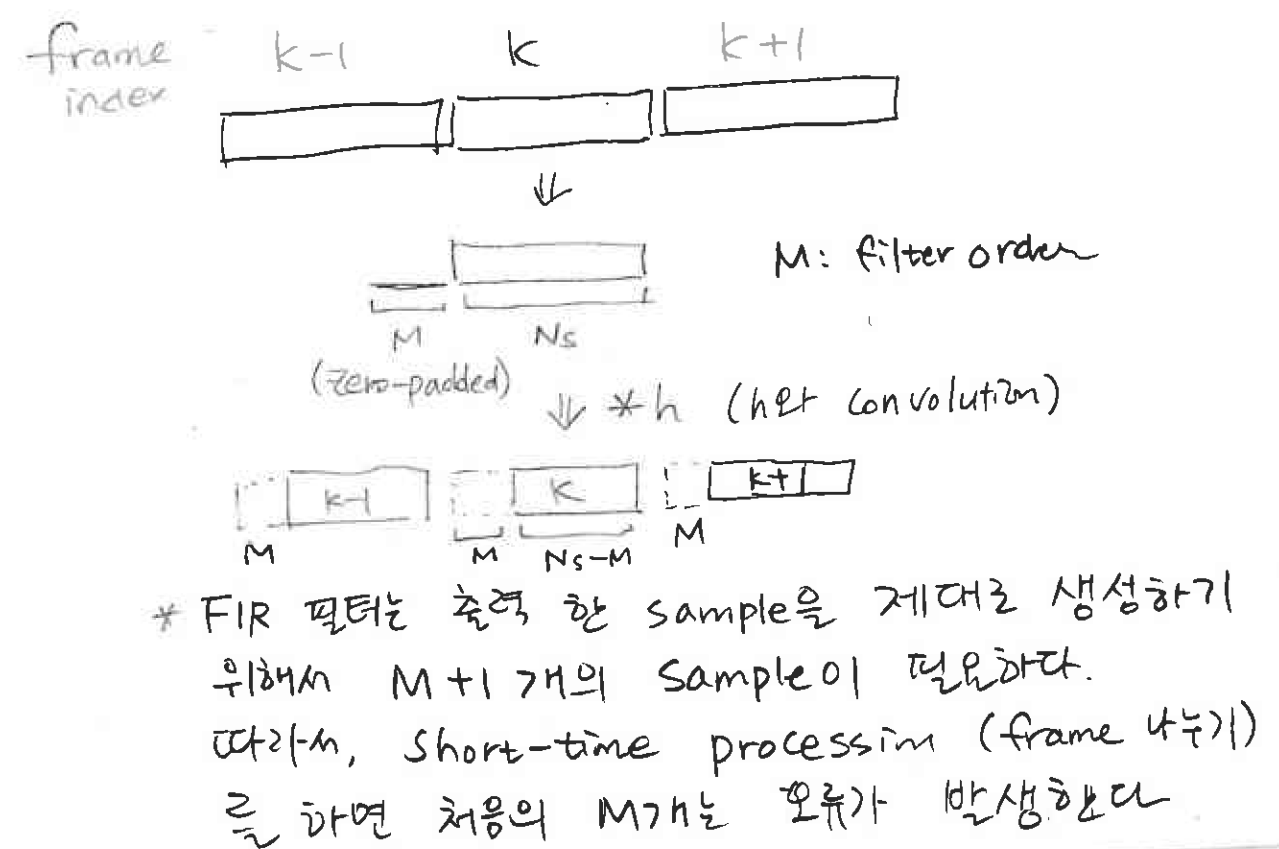 frame k-1 k k+1
index
M: filter order
M Ns
(zero-padded)
* h (h와 convolution)
k-1 k k+1
M M Ns-M M
* FIR 필터는 출력 한 sample을 제대로 생성하기
위해서 M+1개의 sample이 필요하다.
따라서, short-time processin (frame 나누기)
를 하면 처음의 M개는 오류가 발생한다